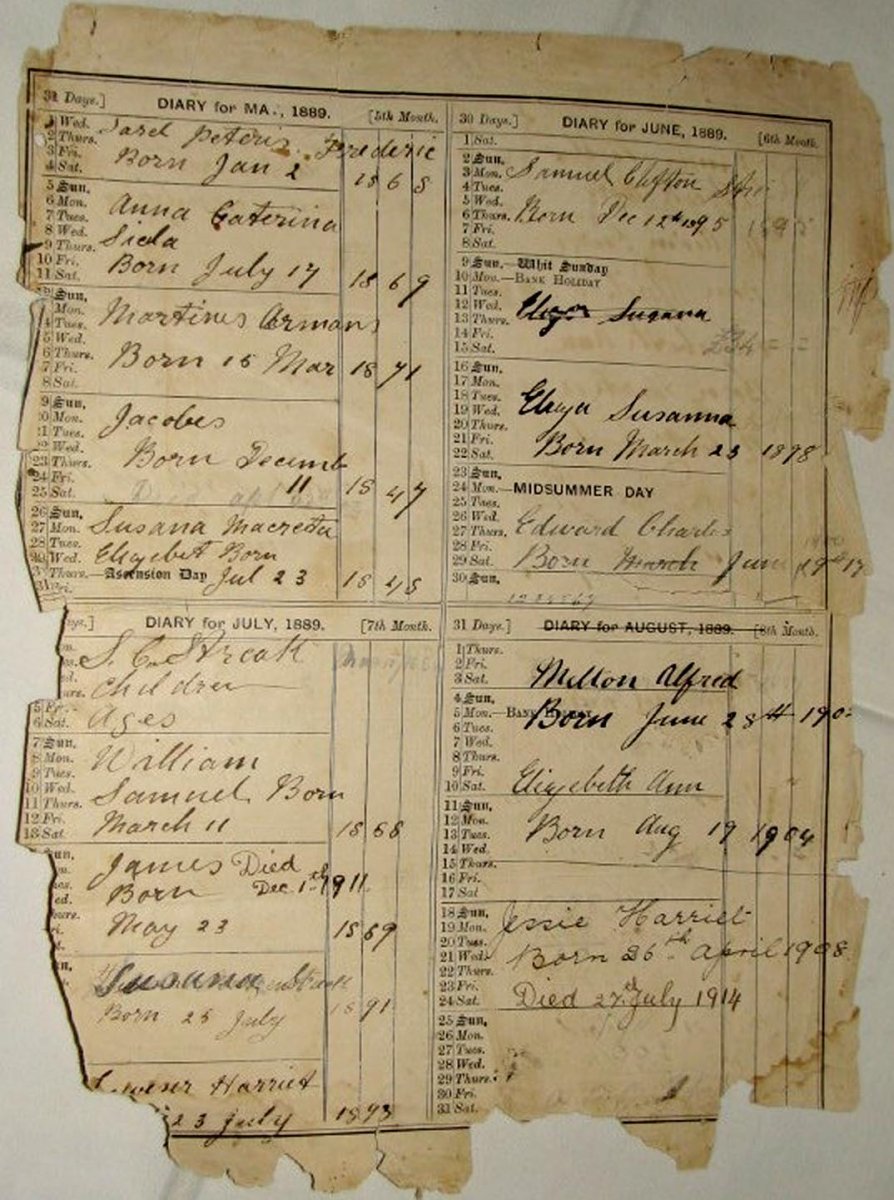 31 Days.] DIARY for MA., 1889. [5th Month.
1 Wed.
2 Thurs.
3 Fri.
4 Sat.
Peteris Frederic
Born Jan 2 1868
5 Sun.
6 Mon.
7 Tues.
8 Wed.
9 Thurs.
10 Fri.
11 Sat.
Anna Caterina
Sida
Born July 17 1869
Sun.
Mon.
Tues.
Wed.
Thurs.
Fri.
Sat.
Martines Armans
Born 15 Mar 1871
Sun.
Mon.
Tues.
Wed.
23 Thurs.
24 Fri.
25 Sat.
Jacobes
Born Decemb
11 1847
26 Sun.
27 Mon.
28 Tues.
Wed.
Thurs.—Ascension Day
Fri.
Susana Macreta
Elizebet Born
Jul 23 1848
30 Days.] DIARY for JUNE, 1889. [6th Month.
1 Sat.
2 Sun.
3 Mon.
4 Tues.
5 Wed.
6 Thurs.
7 Fri.
8 Sat.
Samuel Clifton
Born Dec 12th 1895 1895
9 Sun.—Whit Sunday
10 Mon.—BANK HOLIDAY
11 Tues.
12 Wed.
13 Thurs.
14 Fri.
15 Sat.
Susana
16 Sun.
17 Mon.
18 Tues.
19 Wed.
20 Thurs.
21 Fri.
22 Sat.
Eliza Susanna
Born March 23 1898
23 Sun.
24 Mon.—MIDSUMMER DAY
25 Tues.
26 Wed.
27 Thurs.
28 Fri.
29 Sat.
30 Sun.
Edward Charles
Born March June
ays.] DIARY for JULY, 1889. [7th Month.
S. C. Streak
Children
Ages
5 Fri.
6 Sat.
7 Sun.
8 Mon.
9 Tues.
10 Wed.
11 Thurs.
12 Fri.
13 Sat.
William
Samuel Born
March 11 1868
James Died
Born Dec 1st 1911
May 23 1869
Susanna
Born 25 July 1891
Harriet
23 July 1893
31 Days.] DIARY for AUGUST, 1889. [8th Month.
1 Thurs.
2 Fri.
3 Sat.
Milton Alfred
4 Sun.
5 Mon.—BANK
6 Tues.
7 Wed.
8 Thurs.
9 Fri.
10 Sat.
Born June 28th
Elizebeth Ann
11 Sun.
12 Mon.
13 Tues.
14 Wed.
15 Thurs.
16 Fri.
17 Sat
Born Aug 19 1904
18 Sun.
19 Mon.
20 Tues.
21 Wed.
22 Thurs.
23 Fri.
24 Sat.
Jessie Harriet
Born 26th April 1908
Died 27th July 1914
25 Sun.
26 Mon.
27 Tues.
28 Wed.
29 Thurs.
30 Fri.
31 Sat.